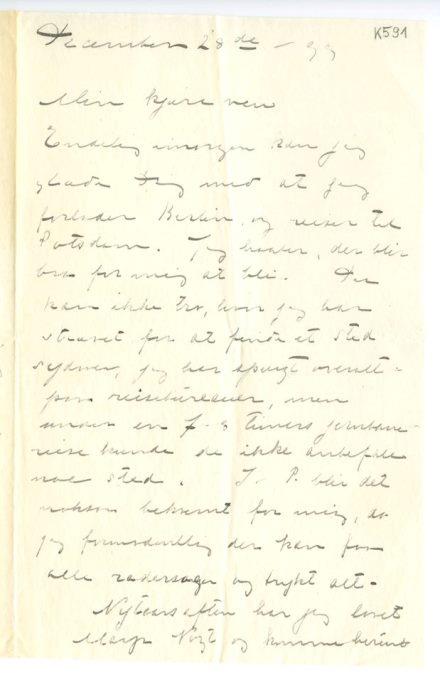 K591
December 28de – 99
Min kjære ven
Endelig imorgen kan jeg
glæde Dig med at jeg
forlader Berlin og reiser til
Potsdam. Jeg haaber, der blir
bra for mig at bli. Du
kan ikke tro, hvor jeg har
strævet for at finde et sted
sydover, jeg har spurgt overalt –
paa reisebureauer, men
under en 7-8 timers jernbane-
reise kunde de ikke anbefale
noe sted. I P. blir det
nokson bekvemt for mig, da
jeg formodentlig der kan faa
alle radersager og trykt alt –
Nytaarsaften har jeg lovet
Marye Vogt og komme herind